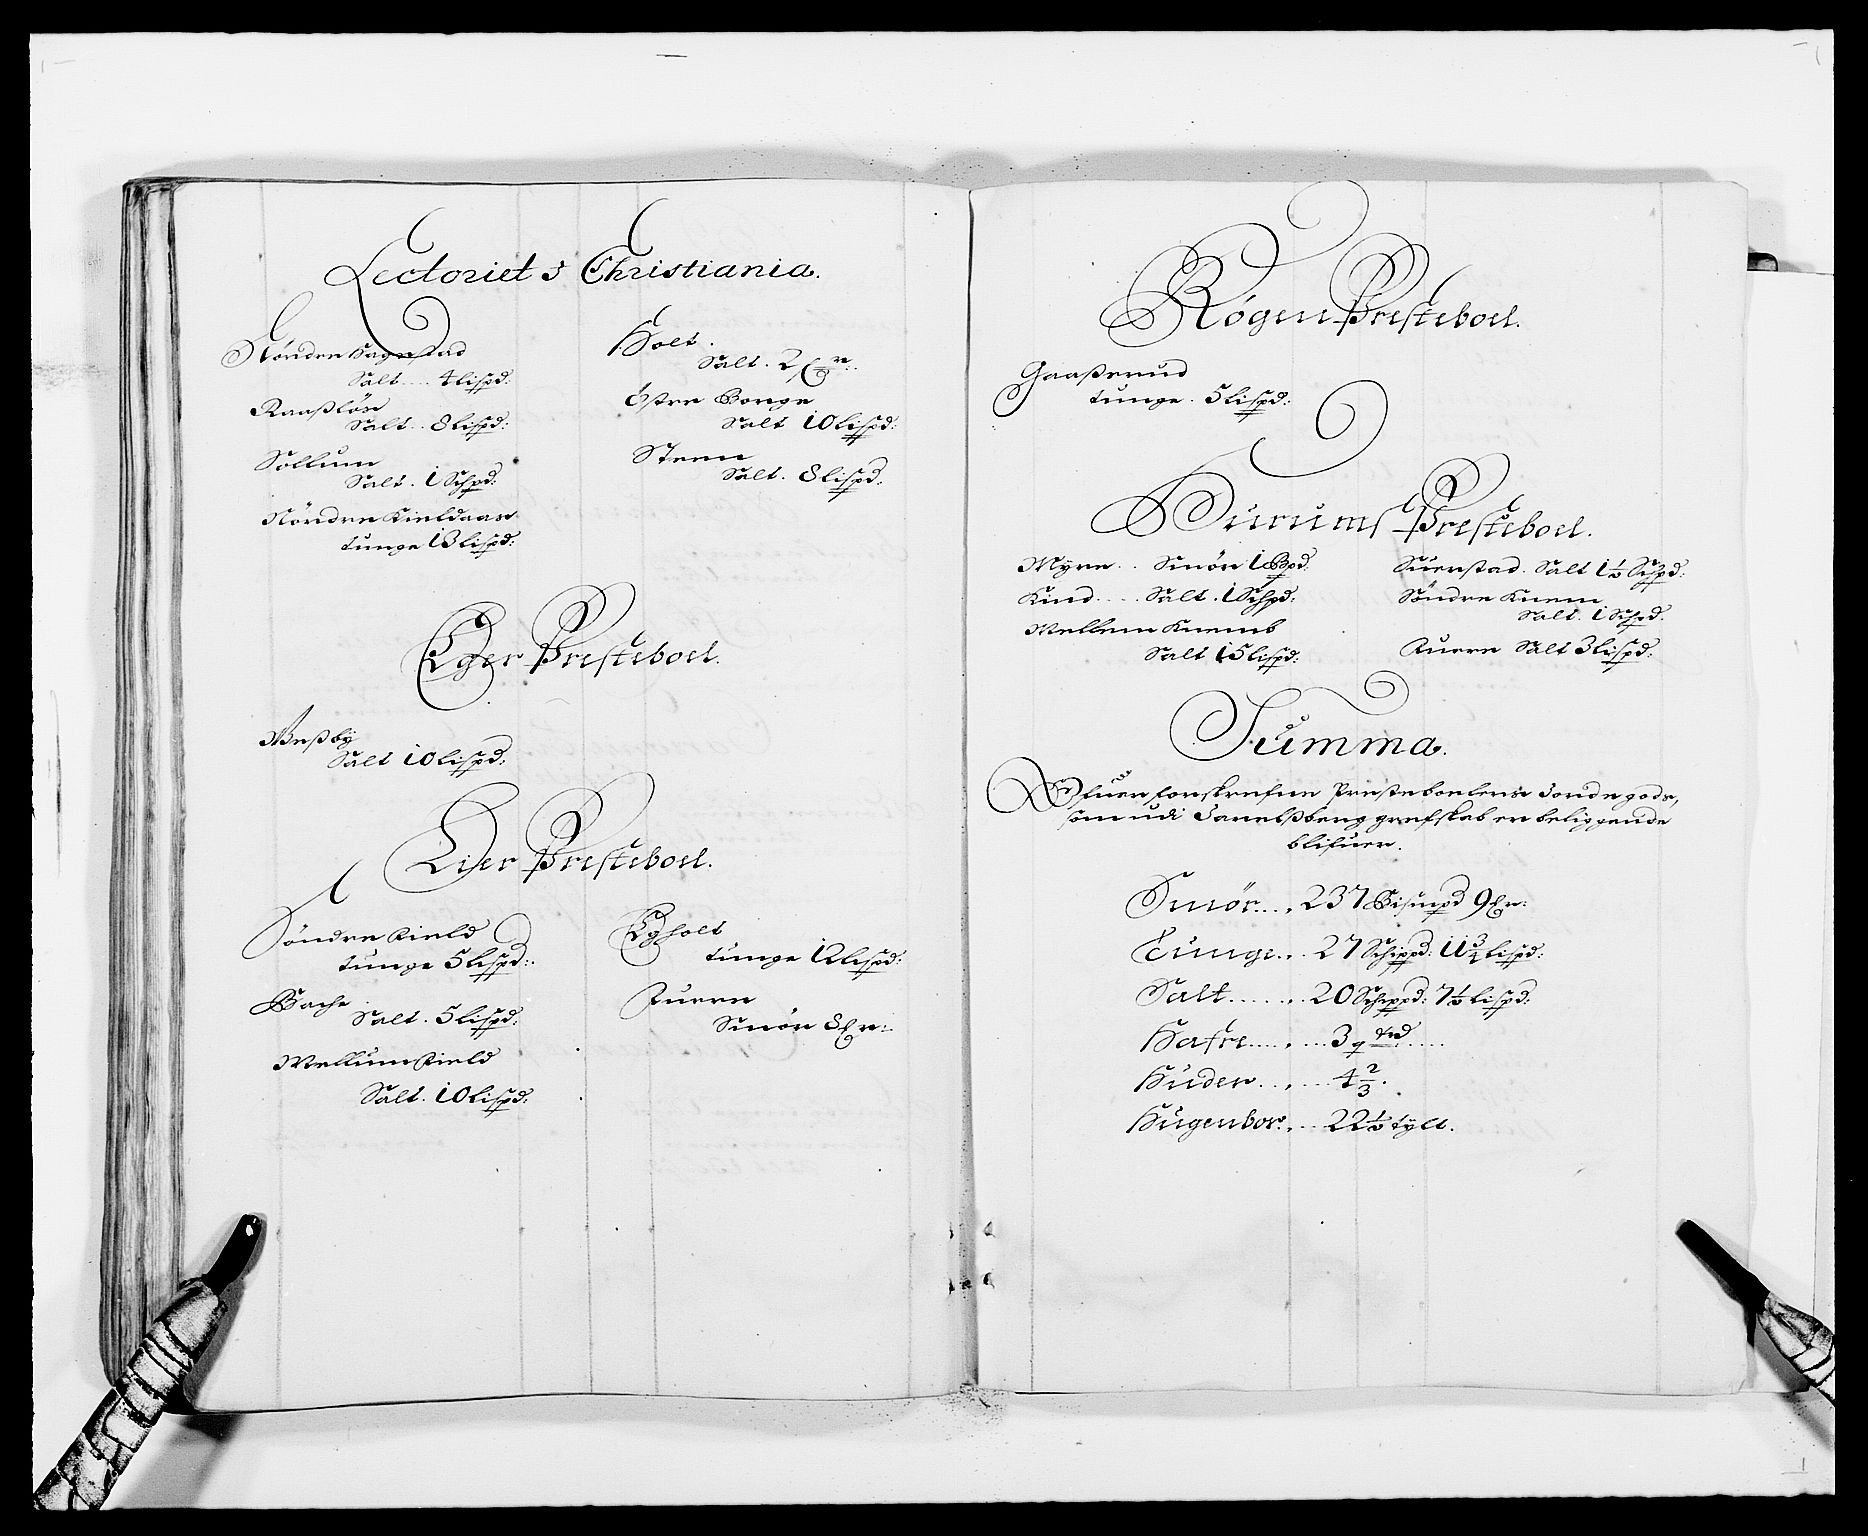 Lectoriet i Christiania.
Nöndre Hagestad
Salt .... 4 lispd:
Raaßlös
Salt .. 8 lispd:
Sollum
Salt . 1 Schpd:
Nöndre Kieldaas
tunge 13 lispd:
Holt .
Salt . 2
Östre Borge
Salt 10 lispd:
Steen
Salt . 8 lispd.
Eger Presteboel.
Weßby
Salt 10 lispd:
Lier Presteboel.
Söndre Kield
tunge 5 lispd:
Bache
Salt . 5 lispd:
Mellum Kield
Salt . 10 lispd:
Egholt
tunge 12 lispd:
Juern
Smör 8
Røgen Presteboel.
Gaaßerud
tunge . 5 lispd:
Hurums Presteboel.
Myre .. Smör 1 Bpd:
Kind .... Salt . 1 Schpd:
Mellem Knemb
Salt 15 lispd:
Suerstad . Salt 1½ Schpd:
Söndre Knem
Salt . 1 Schpd.
Auern Salt 3 lispd:
Summa.
Ofuen forskrefne Presteboelens Jordegods,
som udi Jarelßberg grefskab er beliggende
blifuer.
Smör .... 237 Bismpd 9
Tunge ... 27 Schippd: 11¾ lispd:
Salt ...... 20 Schippd: 7½ lispd:
Hafre ...... 3
Huder ..... 4 2/3.
Hugenbor ... 22½ tylt.